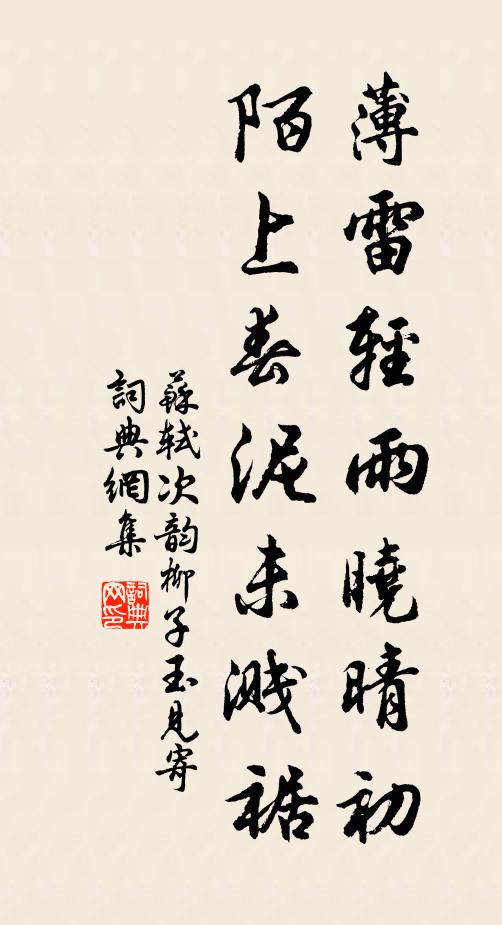 薄雷輕雨曉晴初
陌上春泥未濺裾
蘇軾次韵柳子玉見寄
詞典網集
詞典网印